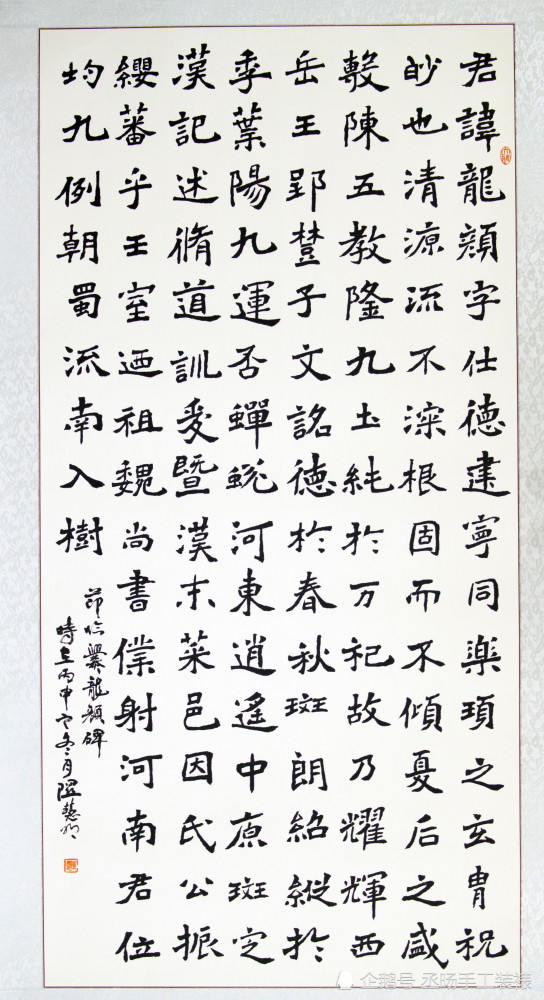 君諱龍顏字仕德建寧同樂頊之玄胄祝
眇也清源流不深根固而不傾夏后之盛
敷陳五教隆九土純於万祀故乃耀輝西
岳王郢楚子文詺德於春秋斑朗紹縱於
季葉陽九運否蟬蛻河東逍遙中原斑定
漢記述脩道訓爰暨漢末菜邑因氏公振
纓蕃乎王室迺祖魏尚書僕射河南君位
均九例朝蜀流南入樹
節临爨龍顏碑
時在丙申之冬月
企鹅号 丞旸手工装裱